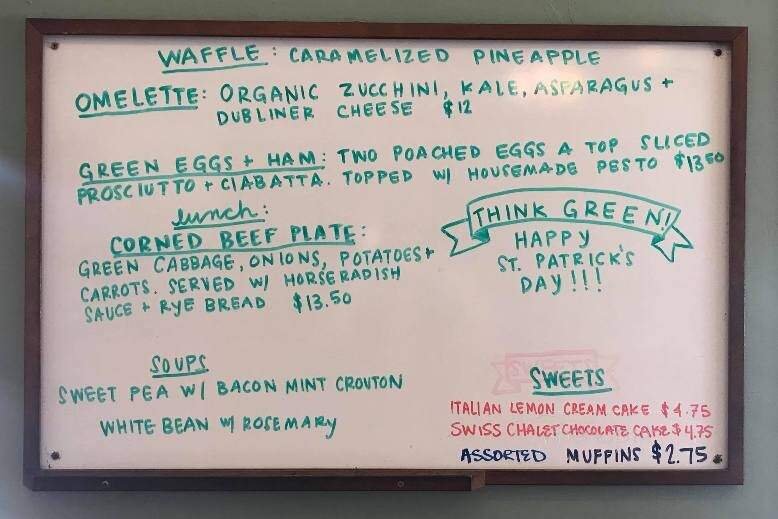 WAFFLE: CARAMELIZED PINEAPPLE
OMELETTE: ORGANIC ZUCCHINI, KALE, ASPARAGUS +
DUBLINER CHEESE $12
GREEN EGGS + HAM: TWO POACHED EGGS A TOP SLICED
PROSCIUTTO + CIABATTA. TOPPED W/ HOUSEMADE PESTO $13.50
lunch:
CORNED BEEF PLATE:
GREEN CABBAGE, ONIONS, POTATOES +
CARROTS. SERVED W/ HORSERADISH
SAUCE + RYE BREAD $13.50
THINK GREEN!
HAPPY
ST. PATRICK'S
DAY!!!
SOUPS
SWEET PEA W/ BACON MINT CROUTON
WHITE BEAN W/ ROSEMARY
SWEETS
ITALIAN LEMON CREAM CAKE $4.75
SWISS CHALET CHOCOLATE CAKE $4.75
ASSORTED MUFFINS $2.75